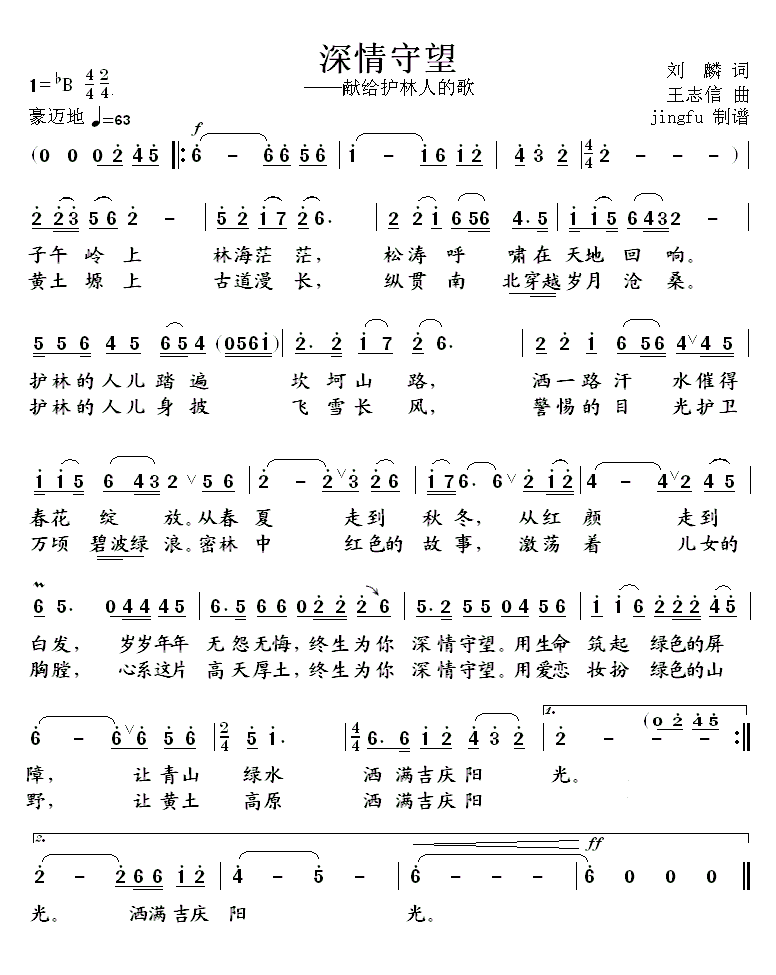 深情守望
——献给护林人的歌
1=♭B 4/4 2/4
刘 麟 词
王志信 曲
豪迈地 ♩=63
jingfu 制谱
f
(0 0 0 2 4 5 ‖: 6 - 6 6 5 6 | 1 - 1 6 1 2 | 4 3 2 | 4/4 2 - - - ) |
2 2 3 5 6 2 - | 5 2 1 7 2 6. | 2 2 1 6 5 6 4. 5 | 1 1 5 6 4 3 2 2 - |
子午 岭 上 林海茫 茫, 松涛 呼 啸在 天地 回 响。
黄土 塬 上 古道漫 长, 纵贯 南 北穿越岁月 沧 桑。
5 5 6 4 5 6 5 4 (0 5 6 1) | 2. 2 1 7 2 6. | 2 2 1 6 5 6 4 ∨ 4 5 |
护林的 人儿 踏 遍 坎 坷山 路, 洒一路 汗 水催得
护林的 人儿 身 披 飞 雪长 风, 警惕的 目 光护卫
1 1 5 6 4 3 2 ∨ 5 6 | 2 - 2 ∨ 3 2 6 | 1 7 6. 6 ∨ 2 1 2 | 4 - 4 ∨ 2 4 5 |
春花 绽 放。从春 夏 走到 秋冬, 从红 颜 走到
万顷 碧波绿 浪。密林 中 红色的 故 事, 激荡 着 儿女的
6 5. 0 4 4 4 5 | 6. 5 6 6 0 2 2 2 6 | 5. 2 5 5 0 4 5 6 | 1 1 6 2 2 2 4 5 |
白发, 岁岁年年 无 怨无悔,终生为你 深 情守望。用生命 筑起 绿色的 屏
胸膛, 心系这片 高 天厚土,终生为你 深 情守望。用爱恋 妆扮 绿色的 山
6 - 6 ∨ 6 5 6 | 2/4 5 1. | 4/4 6. 6 1 2 4 3 2 | 1. 2 - - (0 2 4 5 - :‖
障, 让 青山 绿水 洒 满吉庆 阳 光。
野, 让 黄土 高原 洒 满吉庆 阳
2.
ff
2 - 2 6 6 1 2 | 4 - 5 - | 6 - - - | 6 0 0 0 ‖
光。 洒满 吉庆 阳 光。